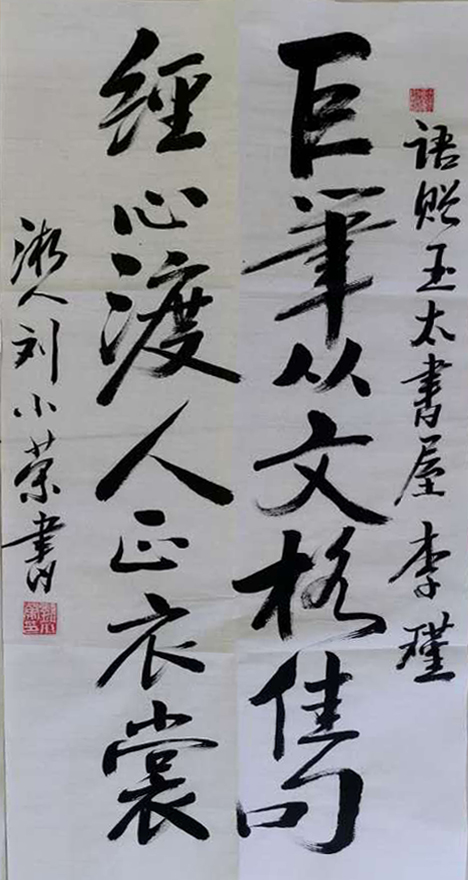 语赠玉太書屋 李瑾
巨筆从文格佳句
經心渡人正衣裳
湘人刘小荣書